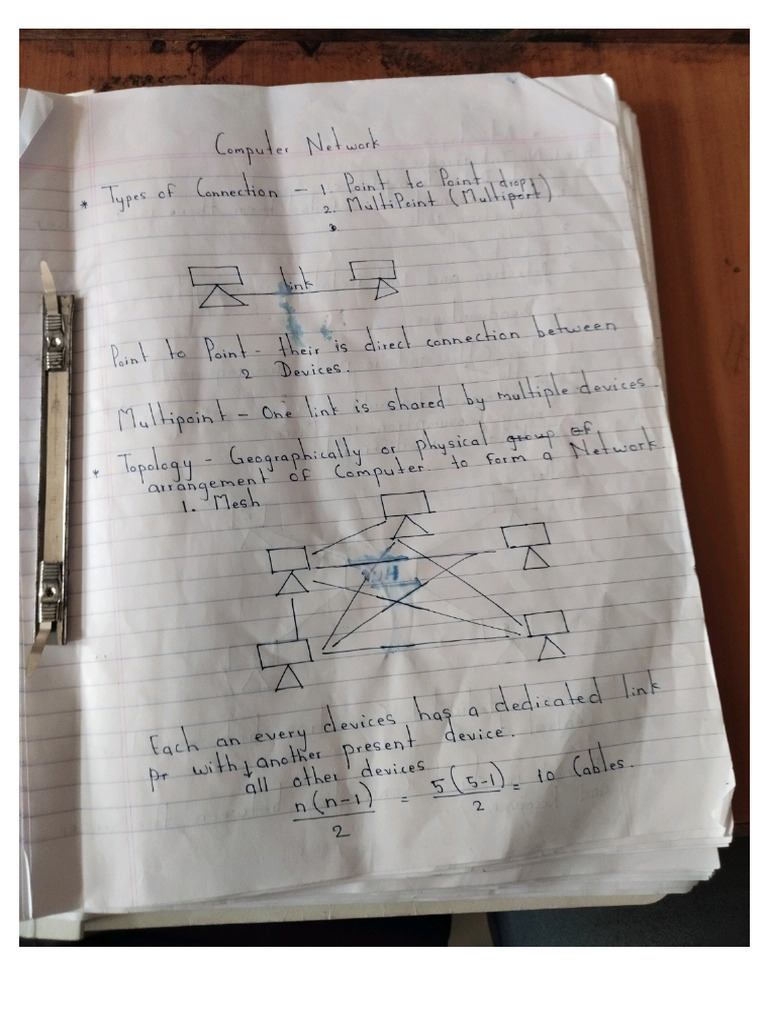 Computer Network
* Types of Connection - 1. Point to Point
2. MultiPoint (Multiport drop)
3.
link
Point to Point - their is direct connection between
2 Devices.
Multipoint - One link is shared by multiple devices.
* Topology - Geographically or physical group of
arrangement of Computer to form a Network
1. Mesh
Each an every devices has a dedicated link
pr with another present device.
all other devices
n(n-1)/2 = 5(5-1)/2 = 10 Cables.